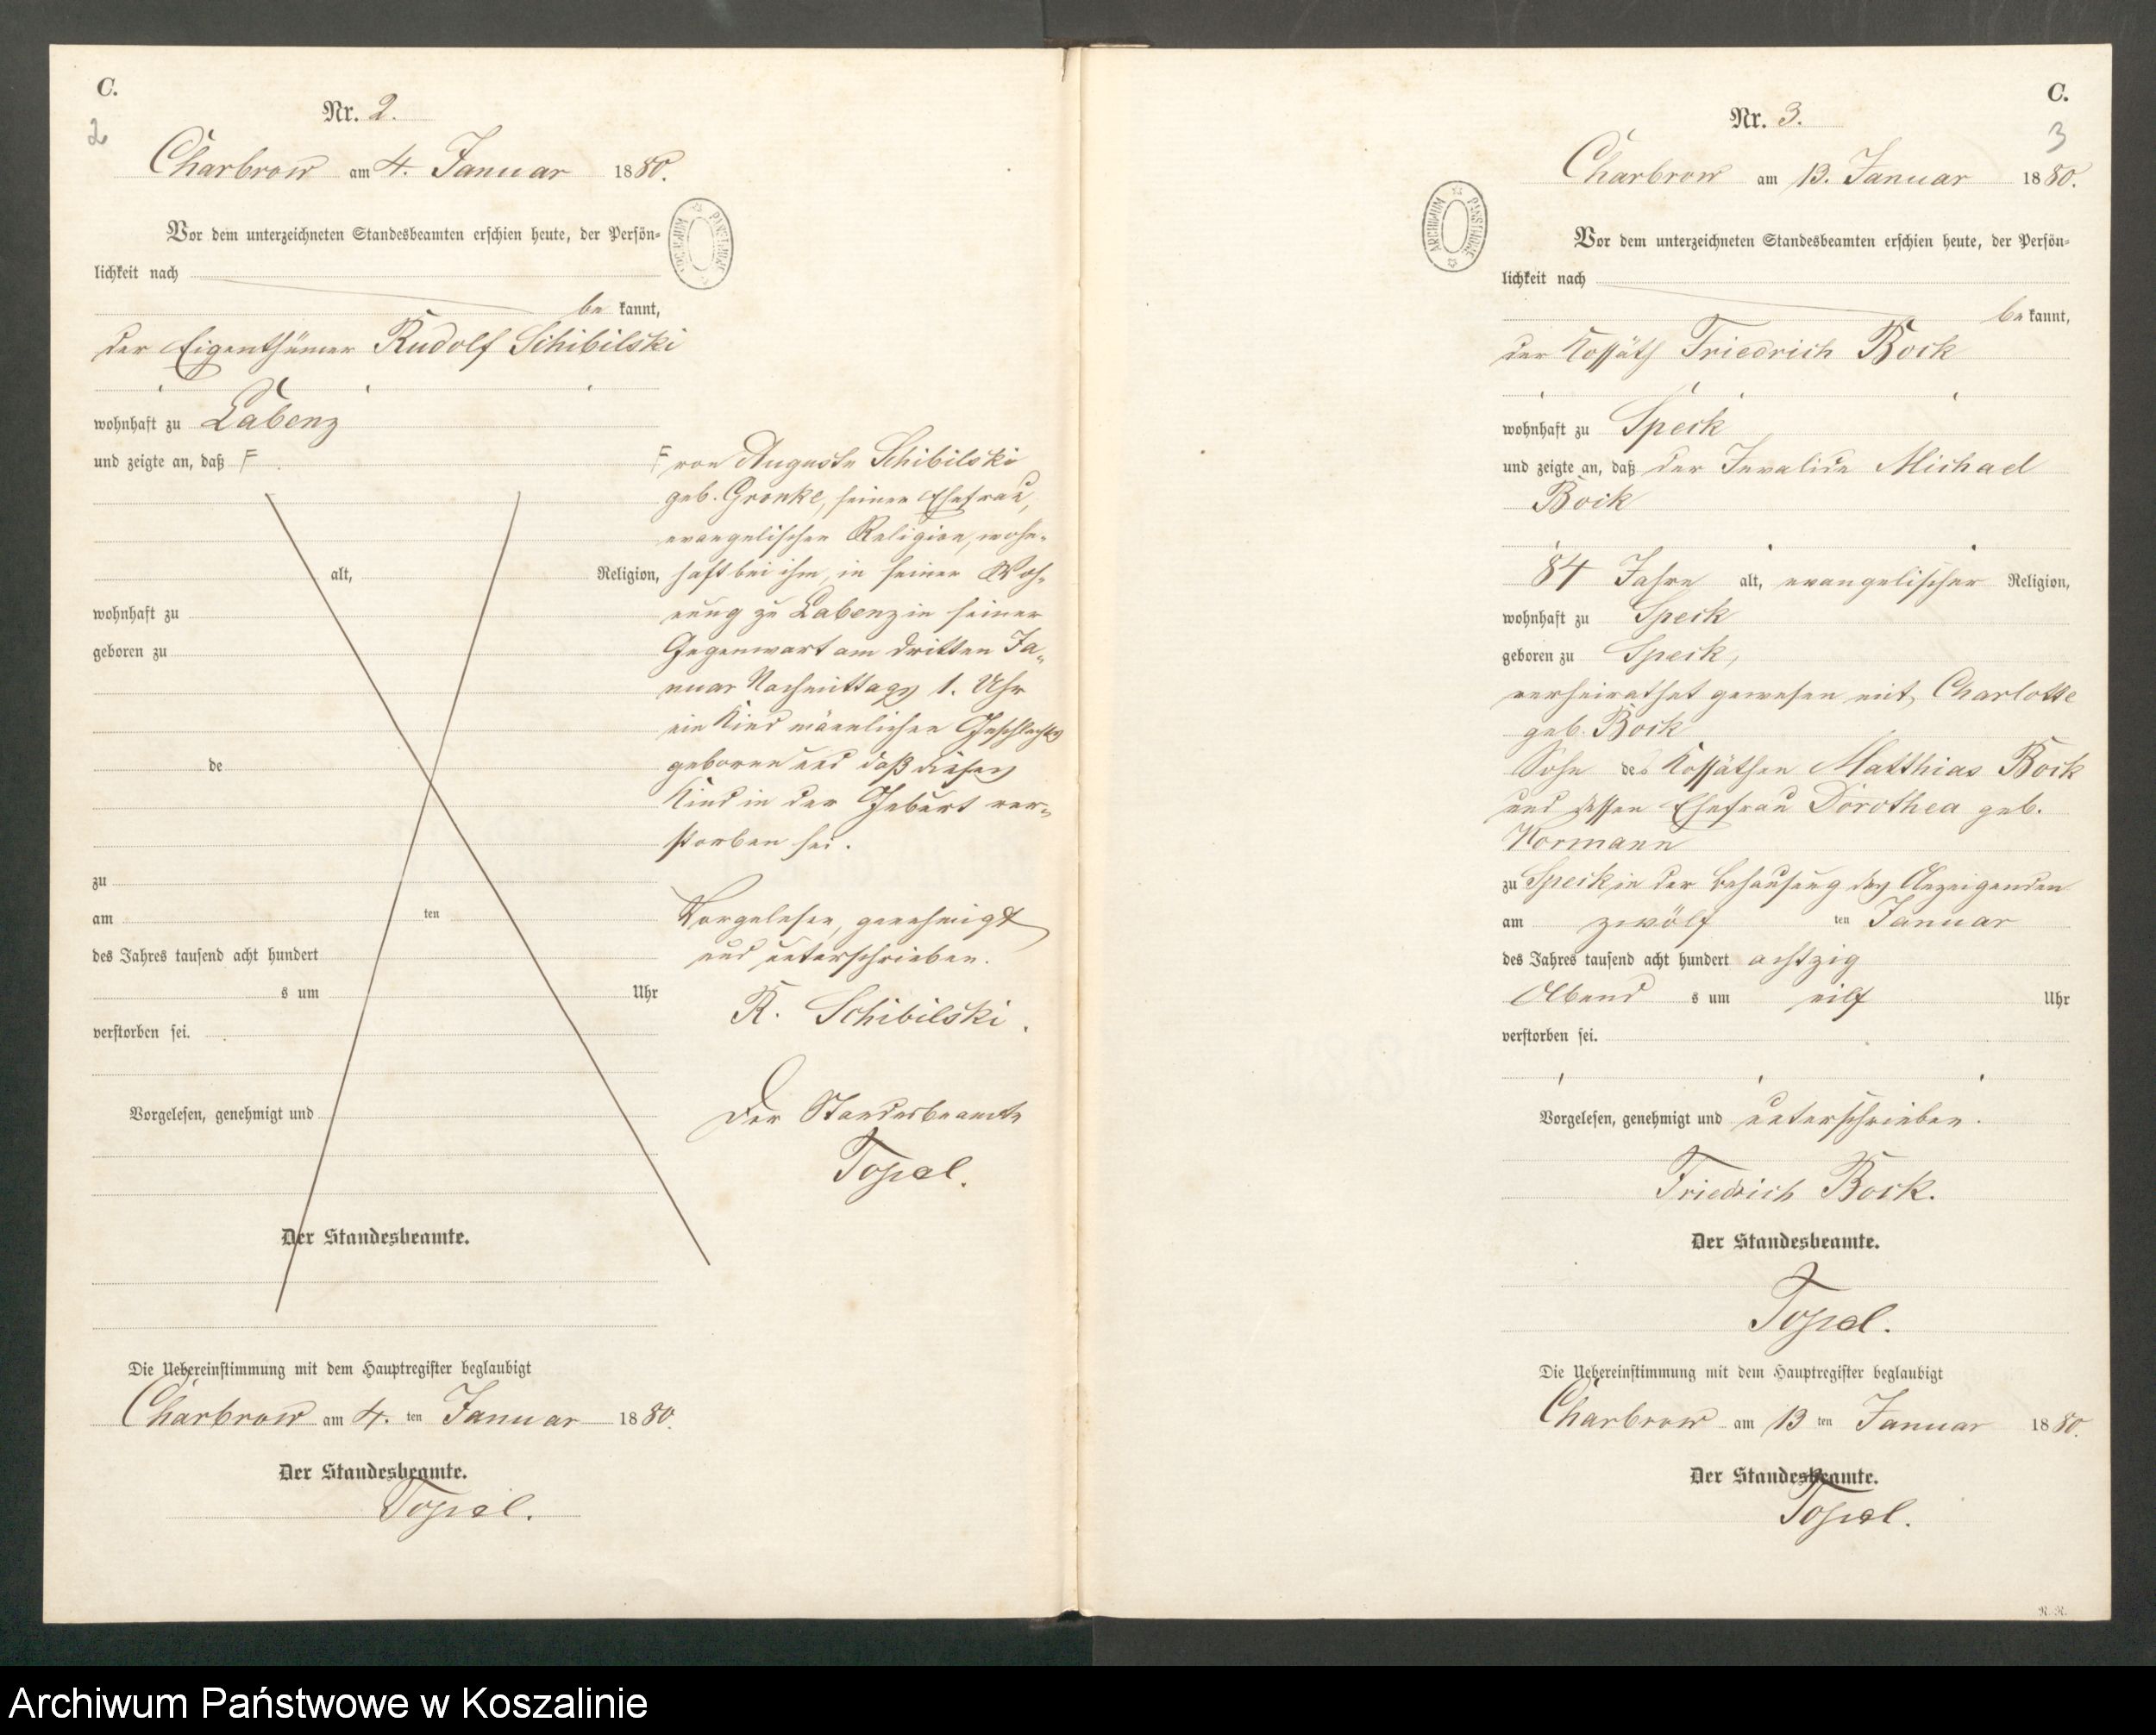 C.
2
Nr. 2.
Charbrow am 4. Januar 1880.
Vor dem unterzeichneten Standesbeamten erschien heute, der Persön-
lichkeit nach
be kannt,
der Eigenthümer Rudolf Schibilski
wohnhaft zu Labenz
und zeigte an, daß F
alt, Religion,
wohnhaft zu
geboren zu
de
zu
am ten
des Jahres tausend acht hundert
s um Uhr
verstorben sei.
Vorgelesen, genehmigt und
Der Standesbeamte.
Die Uebereinstimmung mit dem Hauptregister beglaubigt
Charbrow am 4. ten Januar 1880.
Der Standesbeamte.
Topel.
ARCHIWUM PAŃSTWOWE
F von Auguste Schibilski
geb. Gronke, seiner Ehefrau,
evangelischer Religion, wohn-
haft bei ihm, in seiner Woh-
nung zu Labenz in seiner
Gegenwart am dritten Ja-
nuar Nachmittags 1. Uhr
ein Kind männlichen Geschlechts
geboren und daß dieses
Kind in der Geburt ver-
storben sei.
Vorgelesen, genehmigt
und unterschrieben.
R. Schibilski.
Der Standesbeamte
Topel.
C.
3
Nr. 3.
Charbrow am 13. Januar 1880.
ARCHIWUM PAŃSTWOWE
Vor dem unterzeichneten Standesbeamten erschien heute, der Persön-
lichkeit nach
be kannt,
der Kossäth Friedrich Bock
wohnhaft zu Speck
und zeigte an, daß der Invalide Michael
Bock
84 Jahre alt, evangelischer Religion,
wohnhaft zu Speck
geboren zu Speck,
verheirathet gewesen mit Charlotte
geb. Bock
Sohn des Kossäthen Matthias Bock
und dessen Ehefrau Dorothea geb.
Kormann
zu Speck in der Behausung des Anzeigenden
am zwölf ten Januar
des Jahres tausend acht hundert achtzig
Abend s um eilf Uhr
verstorben sei.
Vorgelesen, genehmigt und unterschrieben.
Friedrich Bock.
Der Standesbeamte.
Topel.
Die Uebereinstimmung mit dem Hauptregister beglaubigt
Charbrow am 13 ten Januar 1880.
Der Standesbeamte.
Topel.
R. R.
Archiwum Państwowe w Koszalinie